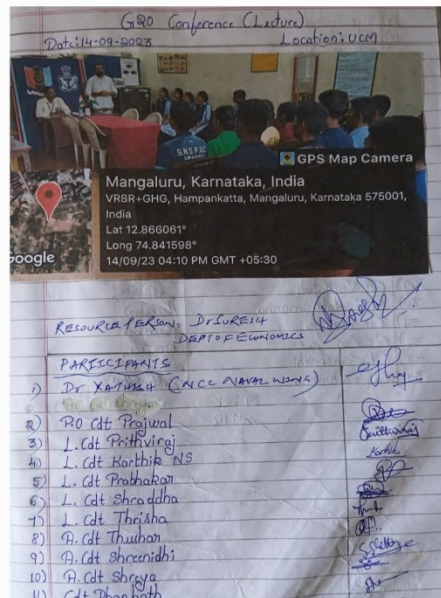 G20 Conference (Lecture)
Date: 14-09-2023 Location: UCM
S.N.S.P.U.C
GPS Map Camera
Mangaluru, Karnataka, India
VR8R+GHG, Hampankatta, Mangaluru, Karnataka 575001,
India
Lat 12.866061°
Long 74.841598°
14/09/23 04:10 PM GMT +05:30
Google
RESOURCE PERSON: Dr SURESH
DEPT OF ECONOMICS
PARTICIPANTS
1) Dr YATHISH (NCC NAVAL WING)
2) P.O Cdt Prajwal
3) L. Cdt Prithviraj Prithviraj
4) L. Cdt Karthik NS Karthik
5) L. Cdt Prabhakar
6) L. Cdt Shraddha
7) L. Cdt Thrisha
8) A. Cdt Thushar
9) A. Cdt Shreenidhi
10) A. Cdt Shreya
11) Cdt